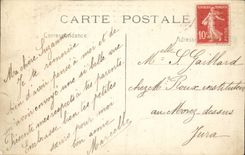 CARTE POSTALE
Correspondance
Adresse
Ma chère Suzanne
Je te remercie
bien d'avoir pensé à moi et de
m'avoir envoyé une si belle carte
Présente mes respects à tes parents
Embrasse bien les petites
sœurs pour moi
ton amie
Marcelle
Mlle S. Gaillard
chez Mr Roux instituteur
au Morez-dessus
Jura
10